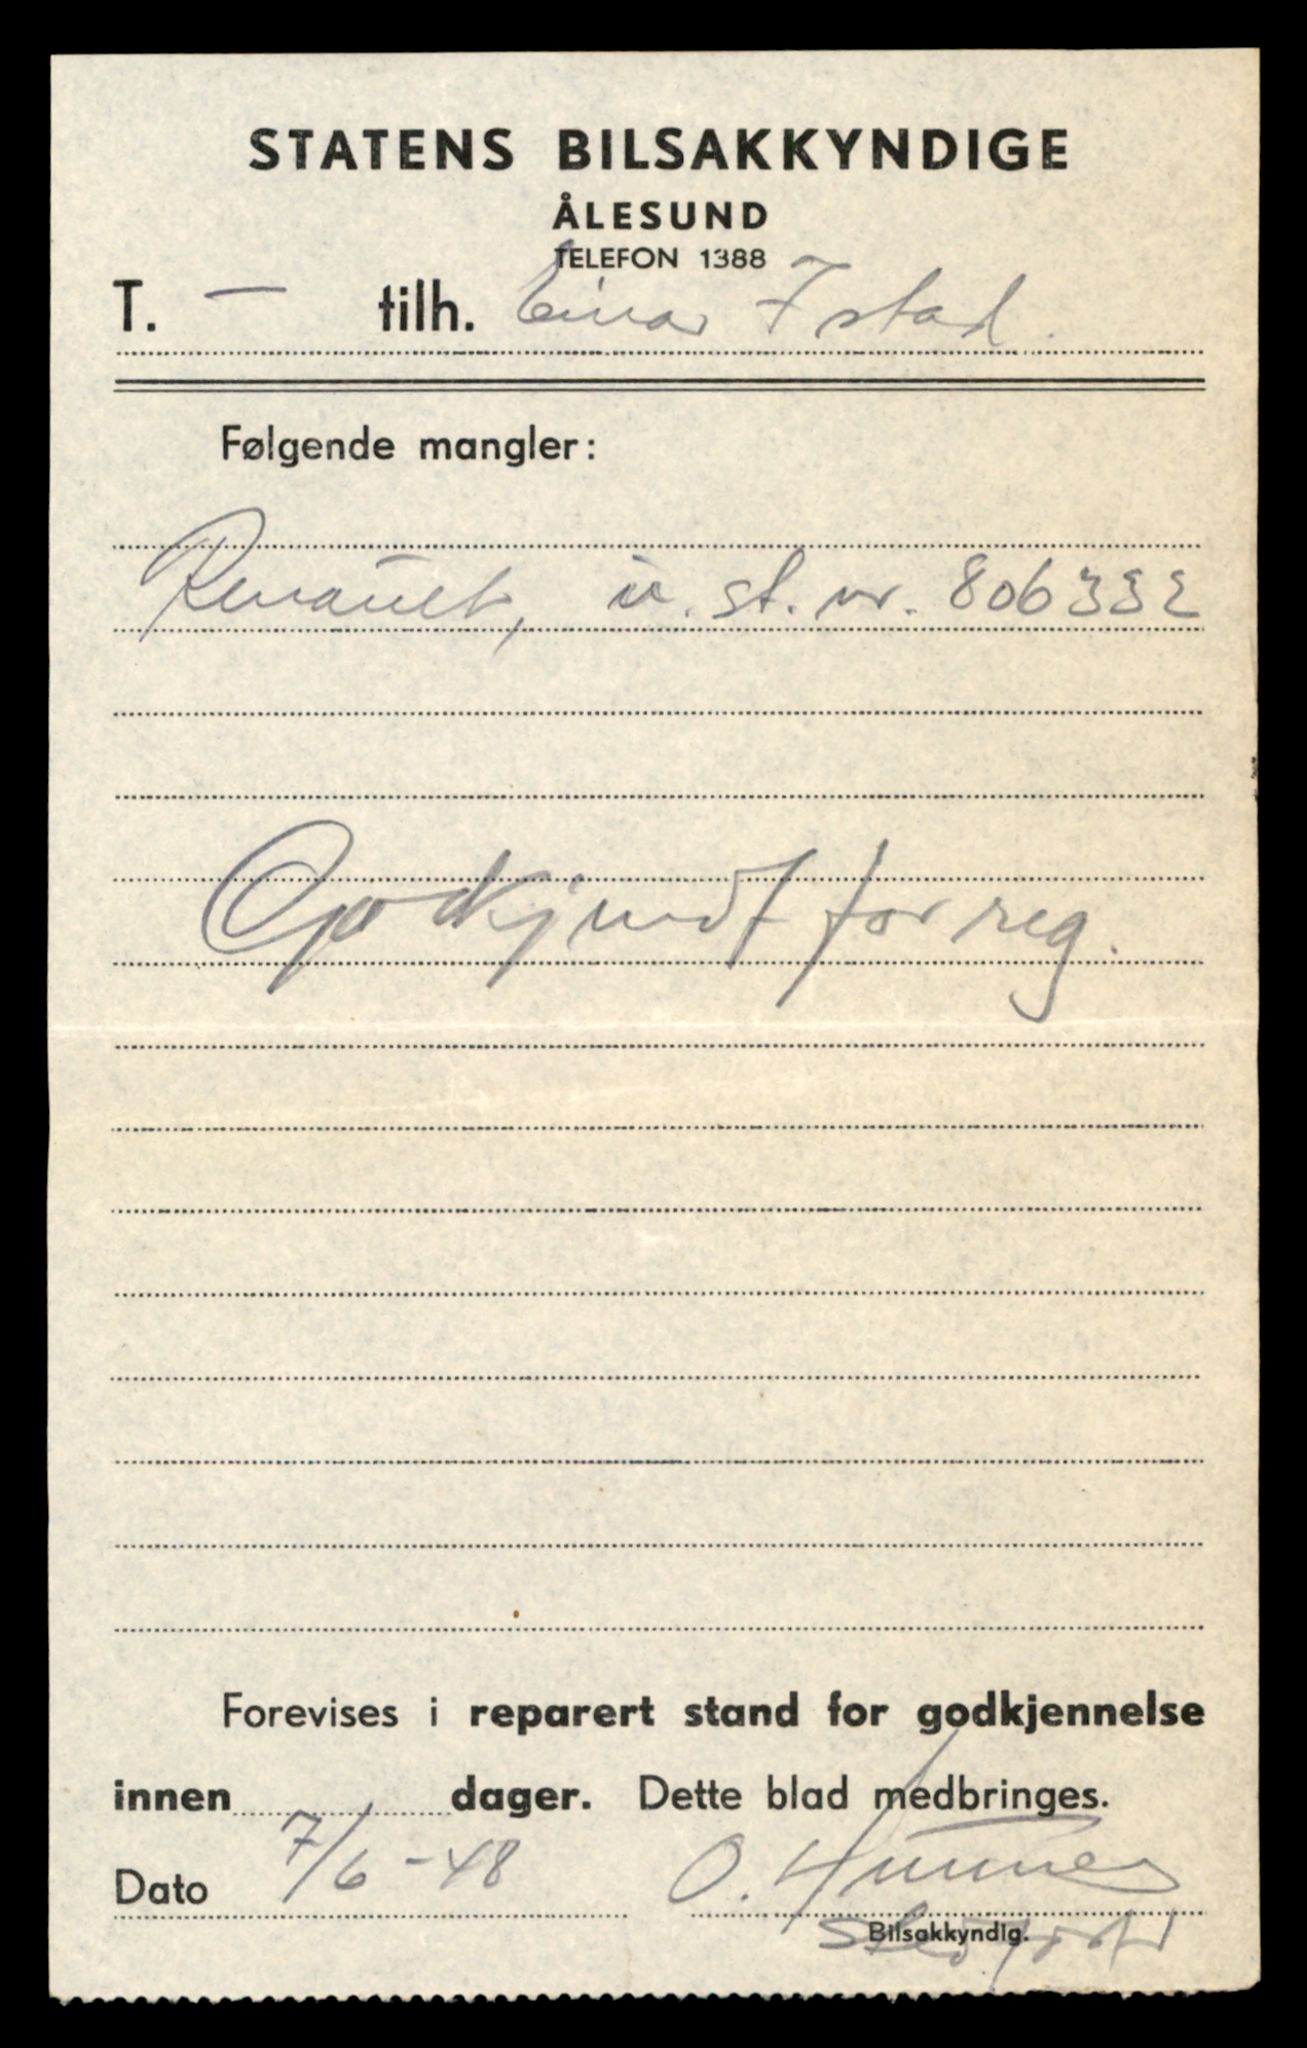 STATENS BILSAKKYNDIGE
ÅLESUND
TELEFON 1388
T. — tilh. Einar Istad.
Følgende mangler:
Renault, u. st. nr. 806332
Godkjendt for reg.
Forevises i reparert stand for godkjennelse
innen dager. Dette blad medbringes.
Dato 7/6-48 O.
Bilsakkyndig.